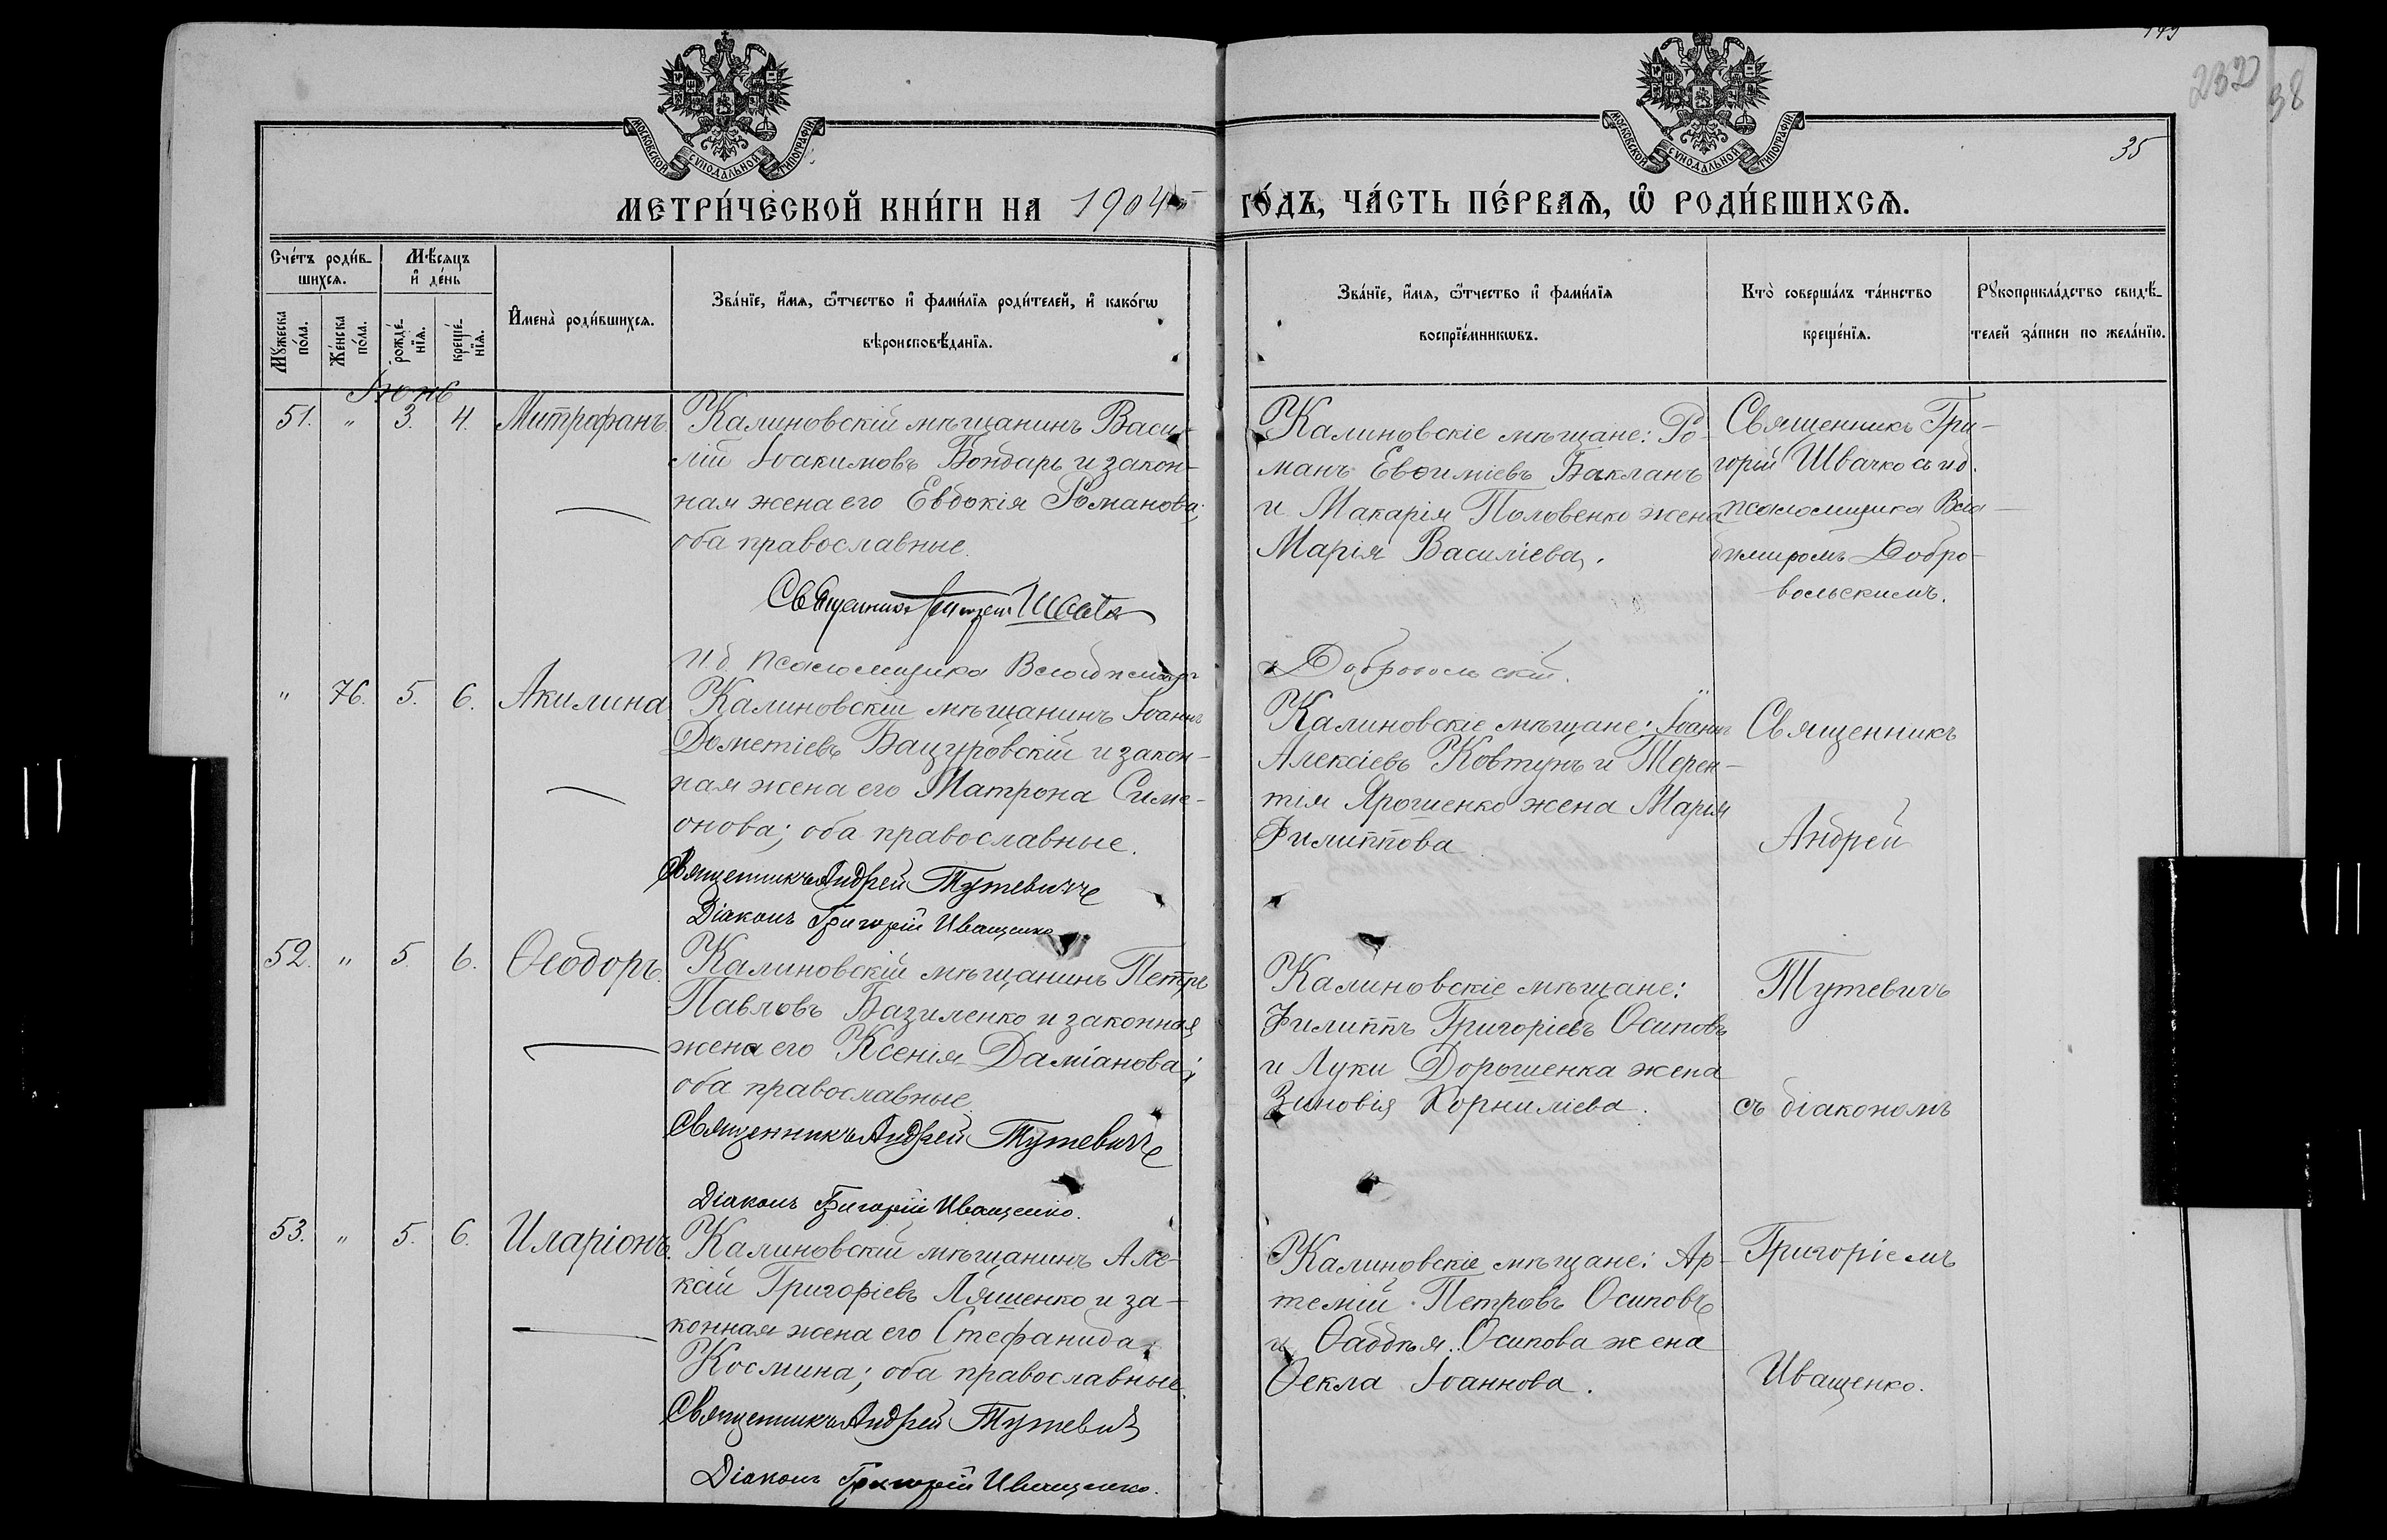 232
38
35
МОСКОВСКОЙ СѴНОДАЛЬНОЙ ТИПОГРАФІИ
МОСКОВСКОЙ СѴНОДАЛЬНОЙ ТИПОГРАФІИ
МЕТРИ́ЧЕСКОЙ КНИ́ГИ НА 1904 ГО́ДЪ, ЧА́СТЬ ПЕ́РВАЯ, Ѡ҆ РОДИ́ВШИХСЯ.
Сче́тъ роди́в-
шихся.
Мѣ́сяцъ
и҆ де́нь
Мꙋ́жеска по́ла.
Же́нска по́ла.
рожде́-
нїя.
креще́-
нїя.
И҆мена̀ роди́вшихся.
Зва́нїе, и҆́мя, ѻ҆́тчество и҆ фами́лїя роди́телей, и҆ како́гѡ
вѣроисповѣ́данїя.
Зва́нїе, и҆́мя, ѻ҆́тчество и҆ фами́лїя
воспрїе́мникѡвъ.
Кто̀ соверша́лъ та́инство
креще́нїя.
Рꙋкоприкла́дство свидѣ́-
телей за́писи по жела́нїю.
Іюнь
51. " 3. 4. Митрофанъ.
Калиновскій мѣщанинъ Васи-
лій Іоакимовъ Бондарь и закон-
ная жена его Евдокія Романова;
оба православные.
Священникъ Григорій Швачко
И. д. псаломщика Владиміръ
Калиновскіе мѣщане: Ро-
манъ Евѳиміевъ Бакланъ
и Макарія Половенко жена
Марія Василіева.
Добровольскій.
Священникъ Гри-
горій Швачко съ и. д.
псаломщика Вла-
диміромъ Добро-
вольскимъ.
" 76. 5. 6. Акилина
Калиновскій мѣщанинъ Іоаннъ
Дометіевъ Бацуровскій и закон-
ная жена его Матрона Симе-
онова; оба православные.
Священникъ Андрей Тутевичъ
Діаконъ Григорій Иващенко
Калиновскіе мѣщане: Іоаннъ
Алексіевъ Ковтунъ и Терен-
тія Ярошенко жена Марія
Филиппова
Священникъ
Андрей
52. " 5. 6. Ѳеодоръ.
Калиновскій мѣщанинъ Петръ
Павловъ Базиленко и законная
жена его Ксенія Даміанова;
оба православные.
Священникъ Андрей Тутевичъ
Діаконъ Григорій Иващенко.
Калиновскіе мѣщане:
Филиппъ Григоріевъ Осиповъ
и Луки Дорошенка жена
Зиновія Корниліева.
Тутевичъ
съ діакономъ
53. " 5. 6. Иларіонъ.
Калиновскій мѣщанинъ Але-
ксій Григоріевъ Ляшенко и за-
конная жена его Стефанида
Космина; оба православные.
Священникъ Андрей Тутевичъ
Діаконъ Григорій Иващенко.
Калиновскіе мѣщане: Ар-
темій Петровъ Осиповъ
и Ѳаддѣя Осипова жена
Ѳекла Іоаннова.
Григоріемъ
Иващенко.